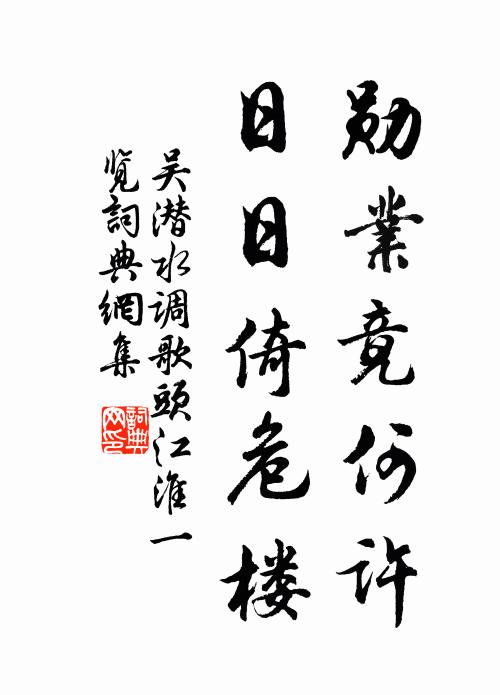 勋業竟何許
日日倚危楼
吴潜水调歌頭江淮一
览詞典網集
詞典网印